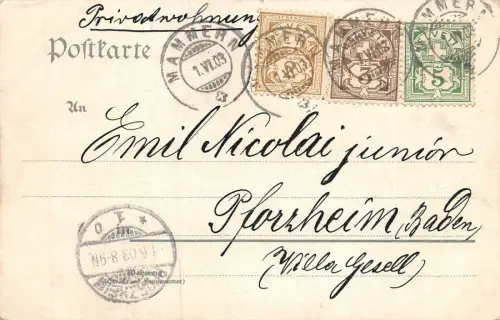 Privatwohnung
Postkarte
MAMMERN
1.VI.03
MAMMERN
MAMMERN
MAMMERN
5
An
Emil Nicolai junior
Pforzheim, Baden
(Villa Gesell)
1.6.03.8-9N
Wohnung
(Straße und Hausnummer)